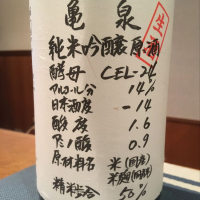 亀泉
生酒
純米吟醸原酒
酵母 CEL-24
アルコール分 14%
日本酒度 -14
酸度 1.6
アミノ酸 0.9
原材料名 米(国産)
米麹(国産米)
精米歩合 50%